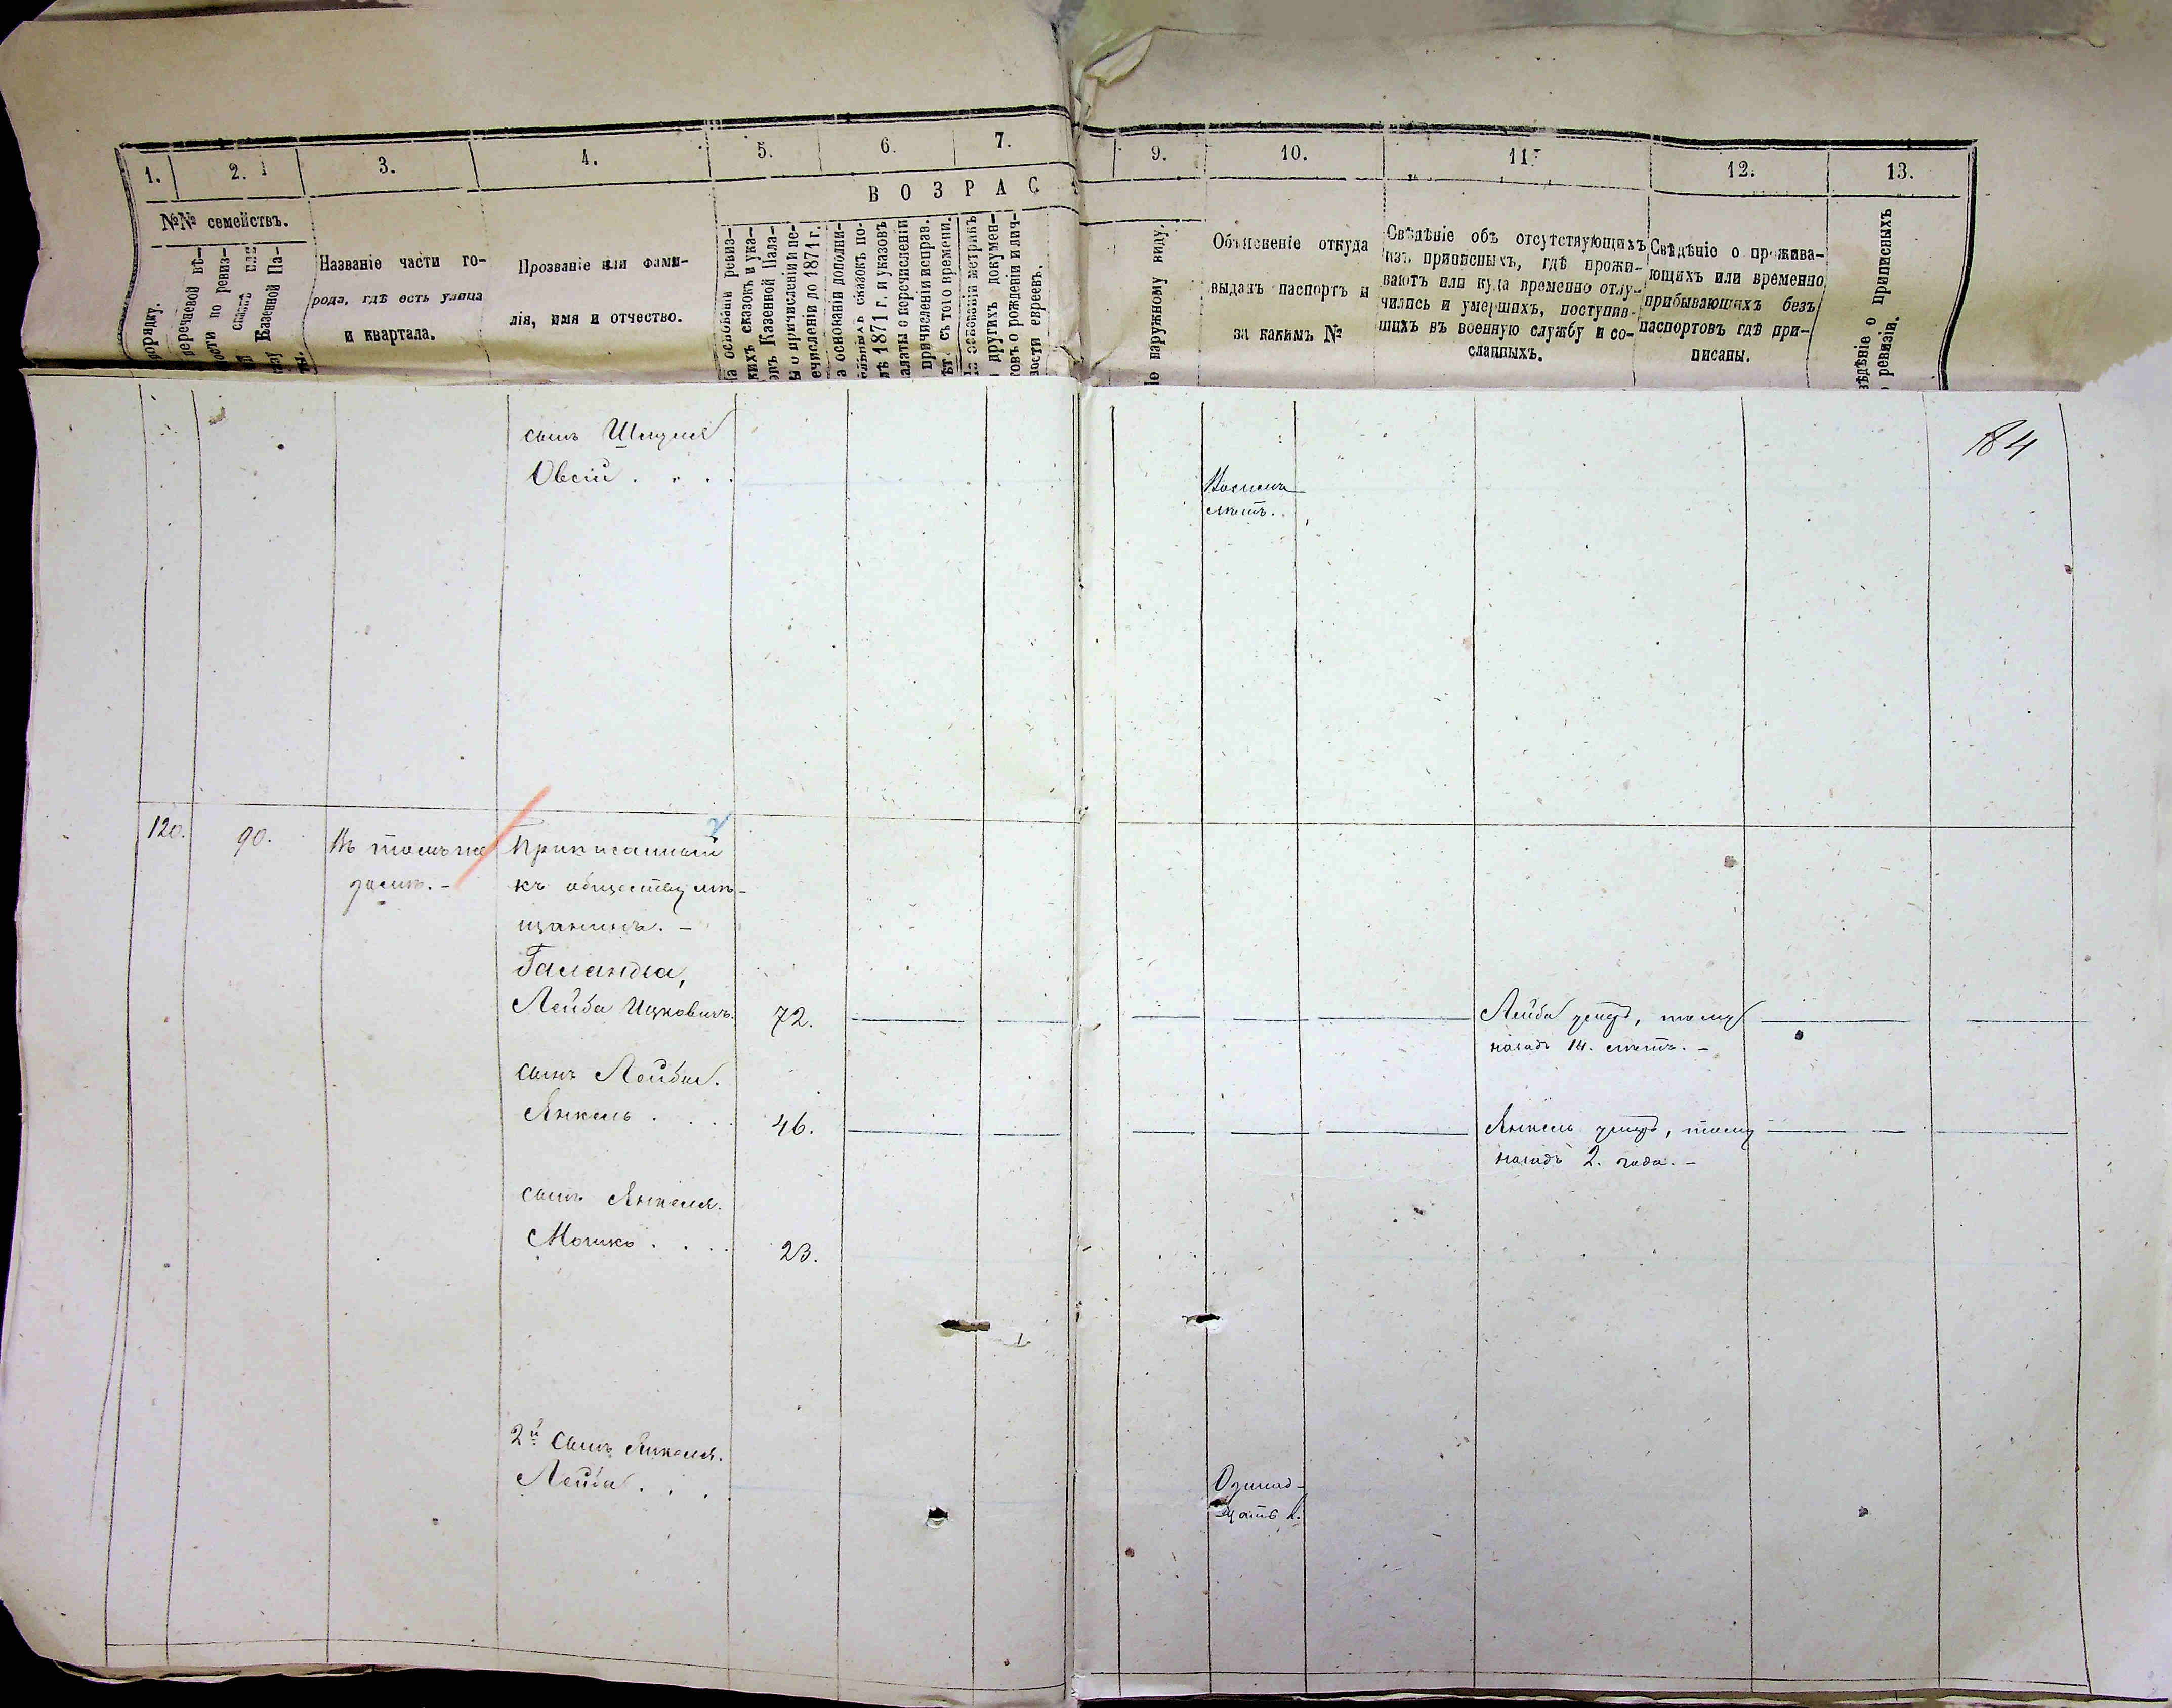 1. 2. 3. 4. 5. 6. 7. 9. 10. 11. 12. 13.
ВОЗРАС
№№ семействъ.
Названіе части го-
рода, гдѣ есть улица
и квартала.
Прозваніе или фами-
лія, имя и отчество.
порядку.
перечневой вѣ-
мости по ревиз-
Казенной Па-
На основаніи ревиз-
скихъ сказокъ и ука-
зовъ Казенной Пала-
ты о причисленіи и пе-
речисленіи до 1871 г.
На основаніи дополни-
тельныхъ сказокъ по-
слѣ 1871 г. и указовъ
Палаты о перечисленіи
и причисленіи исправ.
лѣт. съ того времени.
На основаніи метрикъ
и другихъ докумен-
товъ о рожденіи и лич-
ности евреевъ.
По наружному виду.
Объясненіе откуда
выданъ паспортъ и
за какимъ №
Свѣдѣніе объ отсутствующихъ
изъ приписныхъ, гдѣ прожи-
ваютъ или куда временно отлу-
чились и умершихъ, поступив-
шихъ въ военную службу и со-
сланныхъ.
Свѣдѣніе о прожива-
ющихъ или временно
прибывающихъ безъ
паспортовъ гдѣ при-
писаны.
Свѣдѣніе о приписныхъ
по ревизіи.
184
сынъ
Овсій . . . .
Восемь
лѣтъ.
120. 90. Въ томъ же
домѣ. –
Приписанный
къ обществу мѣ-
щанинъ. –
Галандза,
Лейба Ицковичъ. 72. Лейба умеръ, тому
назадъ 14. лѣтъ. –
сынъ Лейбы.
Янкель . . . . 46. Янкель умеръ, тому
назадъ 2. года. –
сынъ Янкеля.
Мошко . . . . 23.
2й сынъ Янкеля.
Лейба . . . Одинад-
цать л.